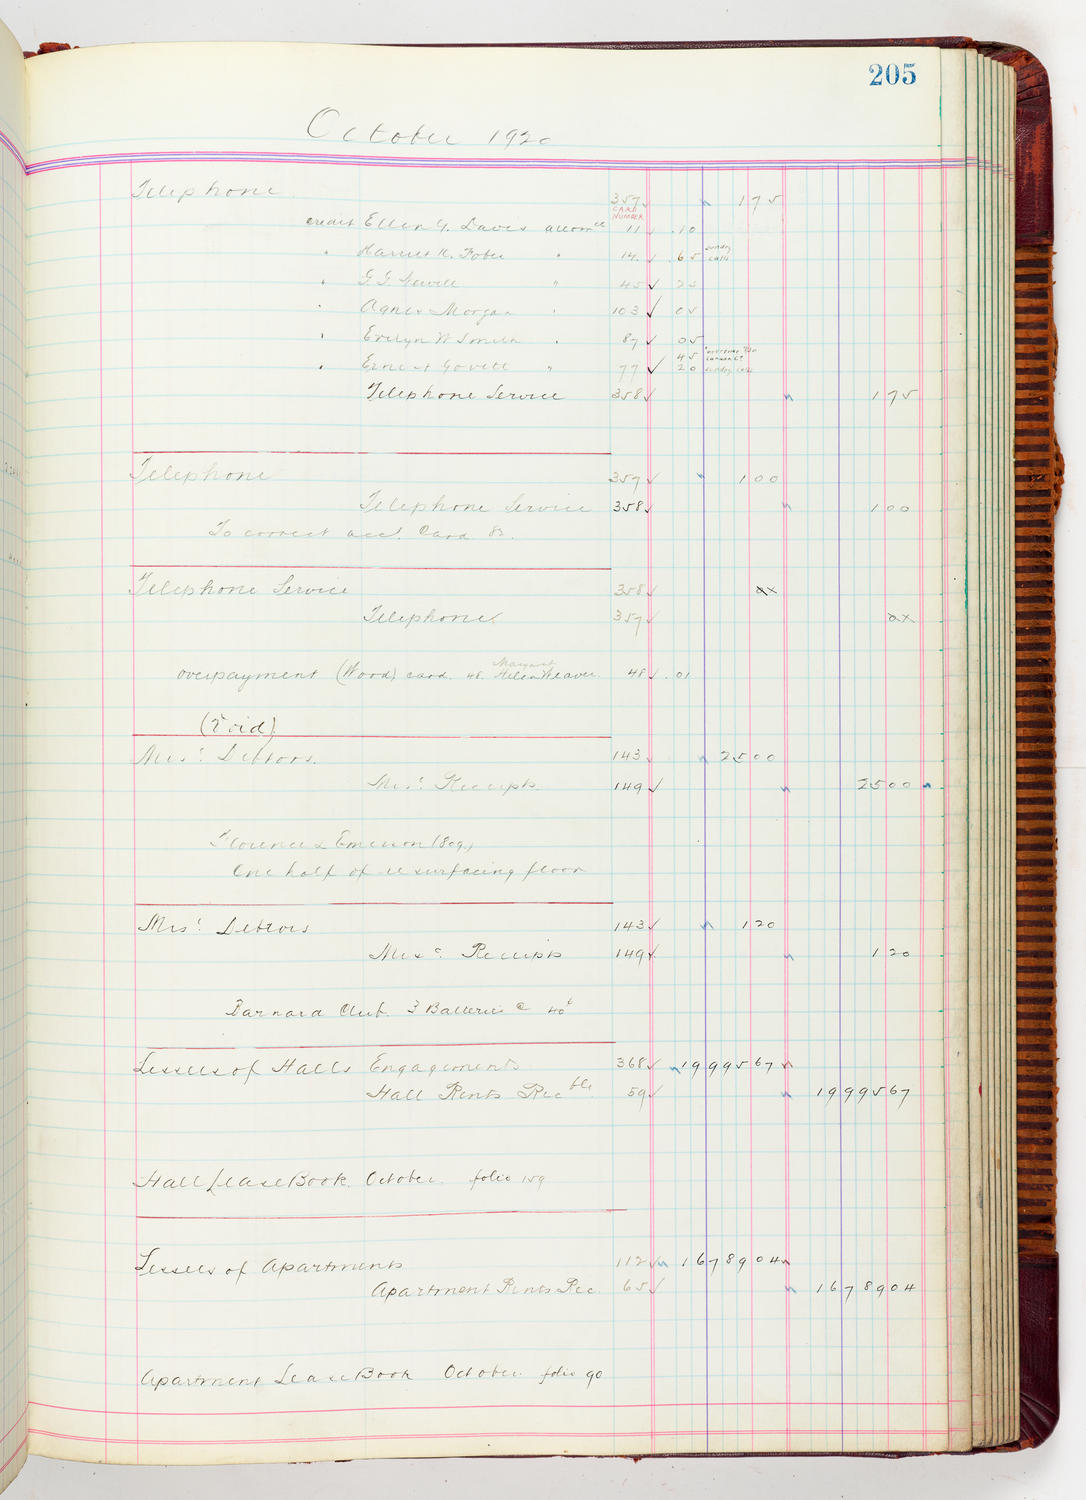 205
October 1920
Telephone 357 175
CARD NUMBER
credit Ellen G. Davis account 11 .10
" Harriet K. " 14 .65 Sunday calls
" " 45 25
" Agnes Morgan " 103 05
" Evelyn W Smith " 87 05
45
" Ernest Govett " 77 20 Sunday calls
Telephone Service 358 175
Telephone 357 100
Telephone Service 358 100
To correct acc't. Card 82.
Telephone Service 358
Telephone 357
Margaret
overpayment (Wood) card. 48. Helen Weaver. 48 .01
(Void)
Mis: Debtors. 143 2500
Mis: Receipts 149 2500
Florence L Emerson (809)
One half of resurfacing floor
Mis: Debtors 143 120
Misc: Receipts 149 120
Barnard Club. 3 Batteries @ 40¢
Lessees of Halls Engagements 368 1999567
Hall Rents Recble 59 1999567
Hall Lease Book. October. folio 159
Lessees of Apartments 112 1678904
Apartment Rents Rec. 65 1678904
Apartment Lease Book October folio 90